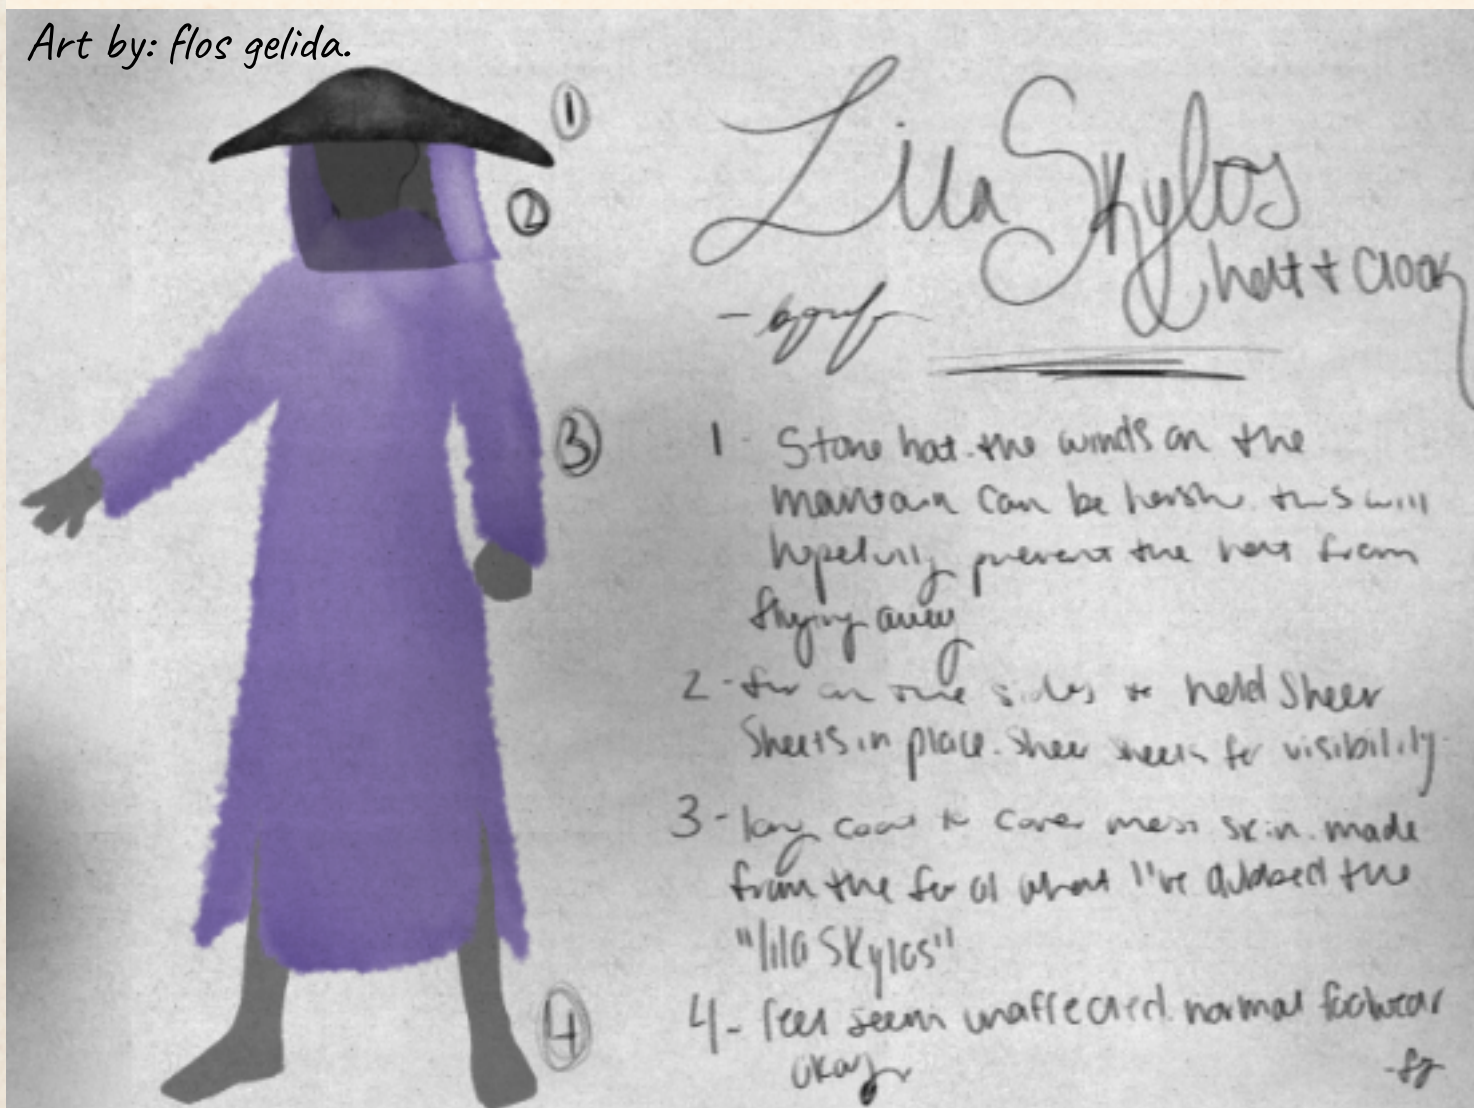 Art by: flos gelida.
1
2
3
4
Lila Skylos
hat + cloak
1 - Stone hat. the winds on the
mountain can be harsh. this will
hopefully prevent the hat from
flying away
2 - fur on the sides to held sheer
sheets in place. sheer sheets for visibility.
3 - long coat to cover most skin. made
from the fur of what I've dubbed the
"lila Skylos"
4 - feet seem unaffected. normal footwear
okay
-fg